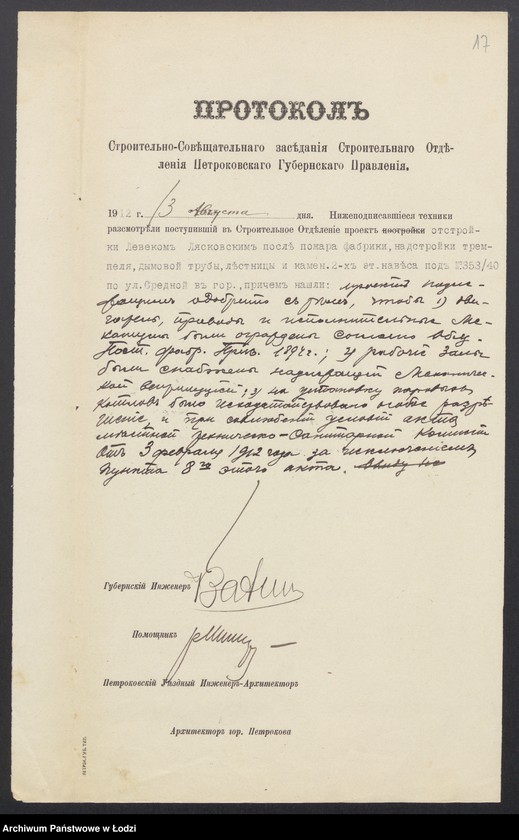 17
ПРОТОКОЛЪ
Строительно-Совѣщательнаго засѣданія Строительнаго Отдѣ-
ленія Петроковскаго Губернскаго Правленія.
1912 г. 13 Августа дня. Нижеподписавшіеся техники
разсмотрѣли поступившій въ Строительное Отдѣленіе проектъ постройки отстрой-
ки Левекомъ Лясковскимъ послѣ пожара фабрики, надстройки трем-
пеля, дымовой трубы, лѣстницы и камен. 2-хъ эт. навѣса подъ №353/40
по ул. Средной въ гор., причемъ нашли: проектъ надле-
одобрить съ тѣмъ, чтобы 1) дви-
гатель, приводы и исполнительные ме-
ханизмы были ограждены согласно Обяз.
Пост. фабр. Прис. 1894 г.; 2) рабочія залы
были снабжены надлежащей механичес-
кой вентиляціей; 3) на установку паровыхъ
котловъ было исходатайствовано особое разрѣ-
шеніе, и при соблюденіи условій акта
мѣстной Технически-Санитарной Комиссіи
отъ 3 февраля 1912 года за исключеніемъ
пункта 8го этого акта.
Губернскій Инженеръ
Помощникъ
Петроковскій Уѣздный Инженеръ-Архитекторъ
Архитекторъ гор. Петрокова
ПЕТРОК.ГУБ.ТИП.
Archiwum Państwowe w Łodzi